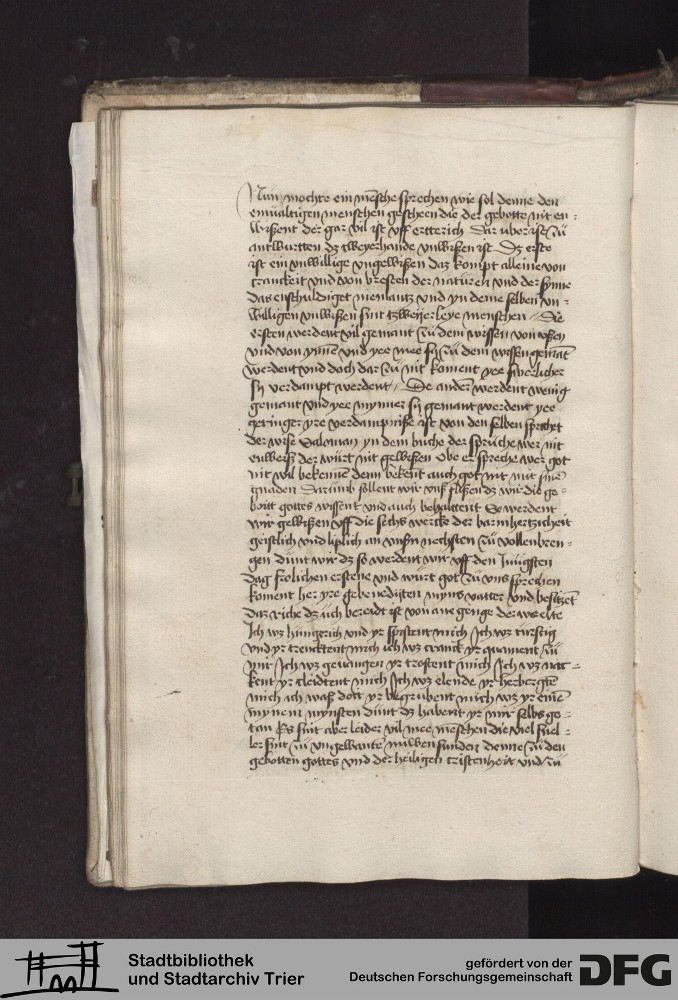 Nün mochte ein mēsche sprechen wie sol denne den
einualtigen menschen gescheen die der gebotte nit en=
wissent der gar vil ist vff ertterich Dar uber ist zü
antwurtten dz tweyerhande vnwissen ist Dz erste
ist ein vnwillige vngewissen daz kompt alleine von
cranckeit vnd von bresten der naturen vnd der synne
das enschuldiget niemantz vnd yn deme selben vn=
willigen vnwissen sint tzweijerleye menschen Die
ersten werdent vil gemant zü dem wissen von vssen
vnd von ynnen vnd yee mee sij zü dem wissen gemāt
werdent vnd doch dar zü nit koment yee swerlicher
sij verdampt werdent Die ander werdent wenig
gemant vnd yee mynner sij gemant werdent yee
geringer yre verdampnisse ist von den selben sprichet
der wise Salman yn dem buche der sprüche wer nit
enweiß der würt nit gewissen Obe er spreche wer got
nit wil bekennē denn bekent auch got nit mit sinē
gnaden Darumb sollent wir vnß flissen dz wir die ge=
bott gottes wissent vnd auch behaltent So werdent
wir gewissen vff die sechs wercke der barmhertzicheit
geistlich vnd liplich an vnsn nechsten zü vollenbren=
gen dünt wir dz so werdent wir vff den Jungsten
dag frolichen erstene vnd würt got zü vns sprechen
koment her yre gebenedijten myns vatter vnd besitzēt
daz riche dz üch bereidt ist von ane genge der welte
Ich wz hungerich vnd yr spistent mich Ich wz turstig
vnd yr trencktent mich ich wz cranck yr quament zü
mir Ich wz geuangen yr trostent mich Ich wz nac=
kent yr cleidtent mich Ich wz elende yr herbergtē
mich ich waß dott yr begrubent mich wz yr einē
mynem mynsten dünt dz habent yr mir selbs ge=
tan Es sint aber leider vil mee mēschen die viel snel=
ler sint zü vngewanten sunden denne zü den
gebotten gottes vnd der heiligen cristenheit vnd zü
Stadtbibliothek
und Stadtarchiv Trier
gefördert von der
Deutschen Forschungsgemeinschaft
DFG